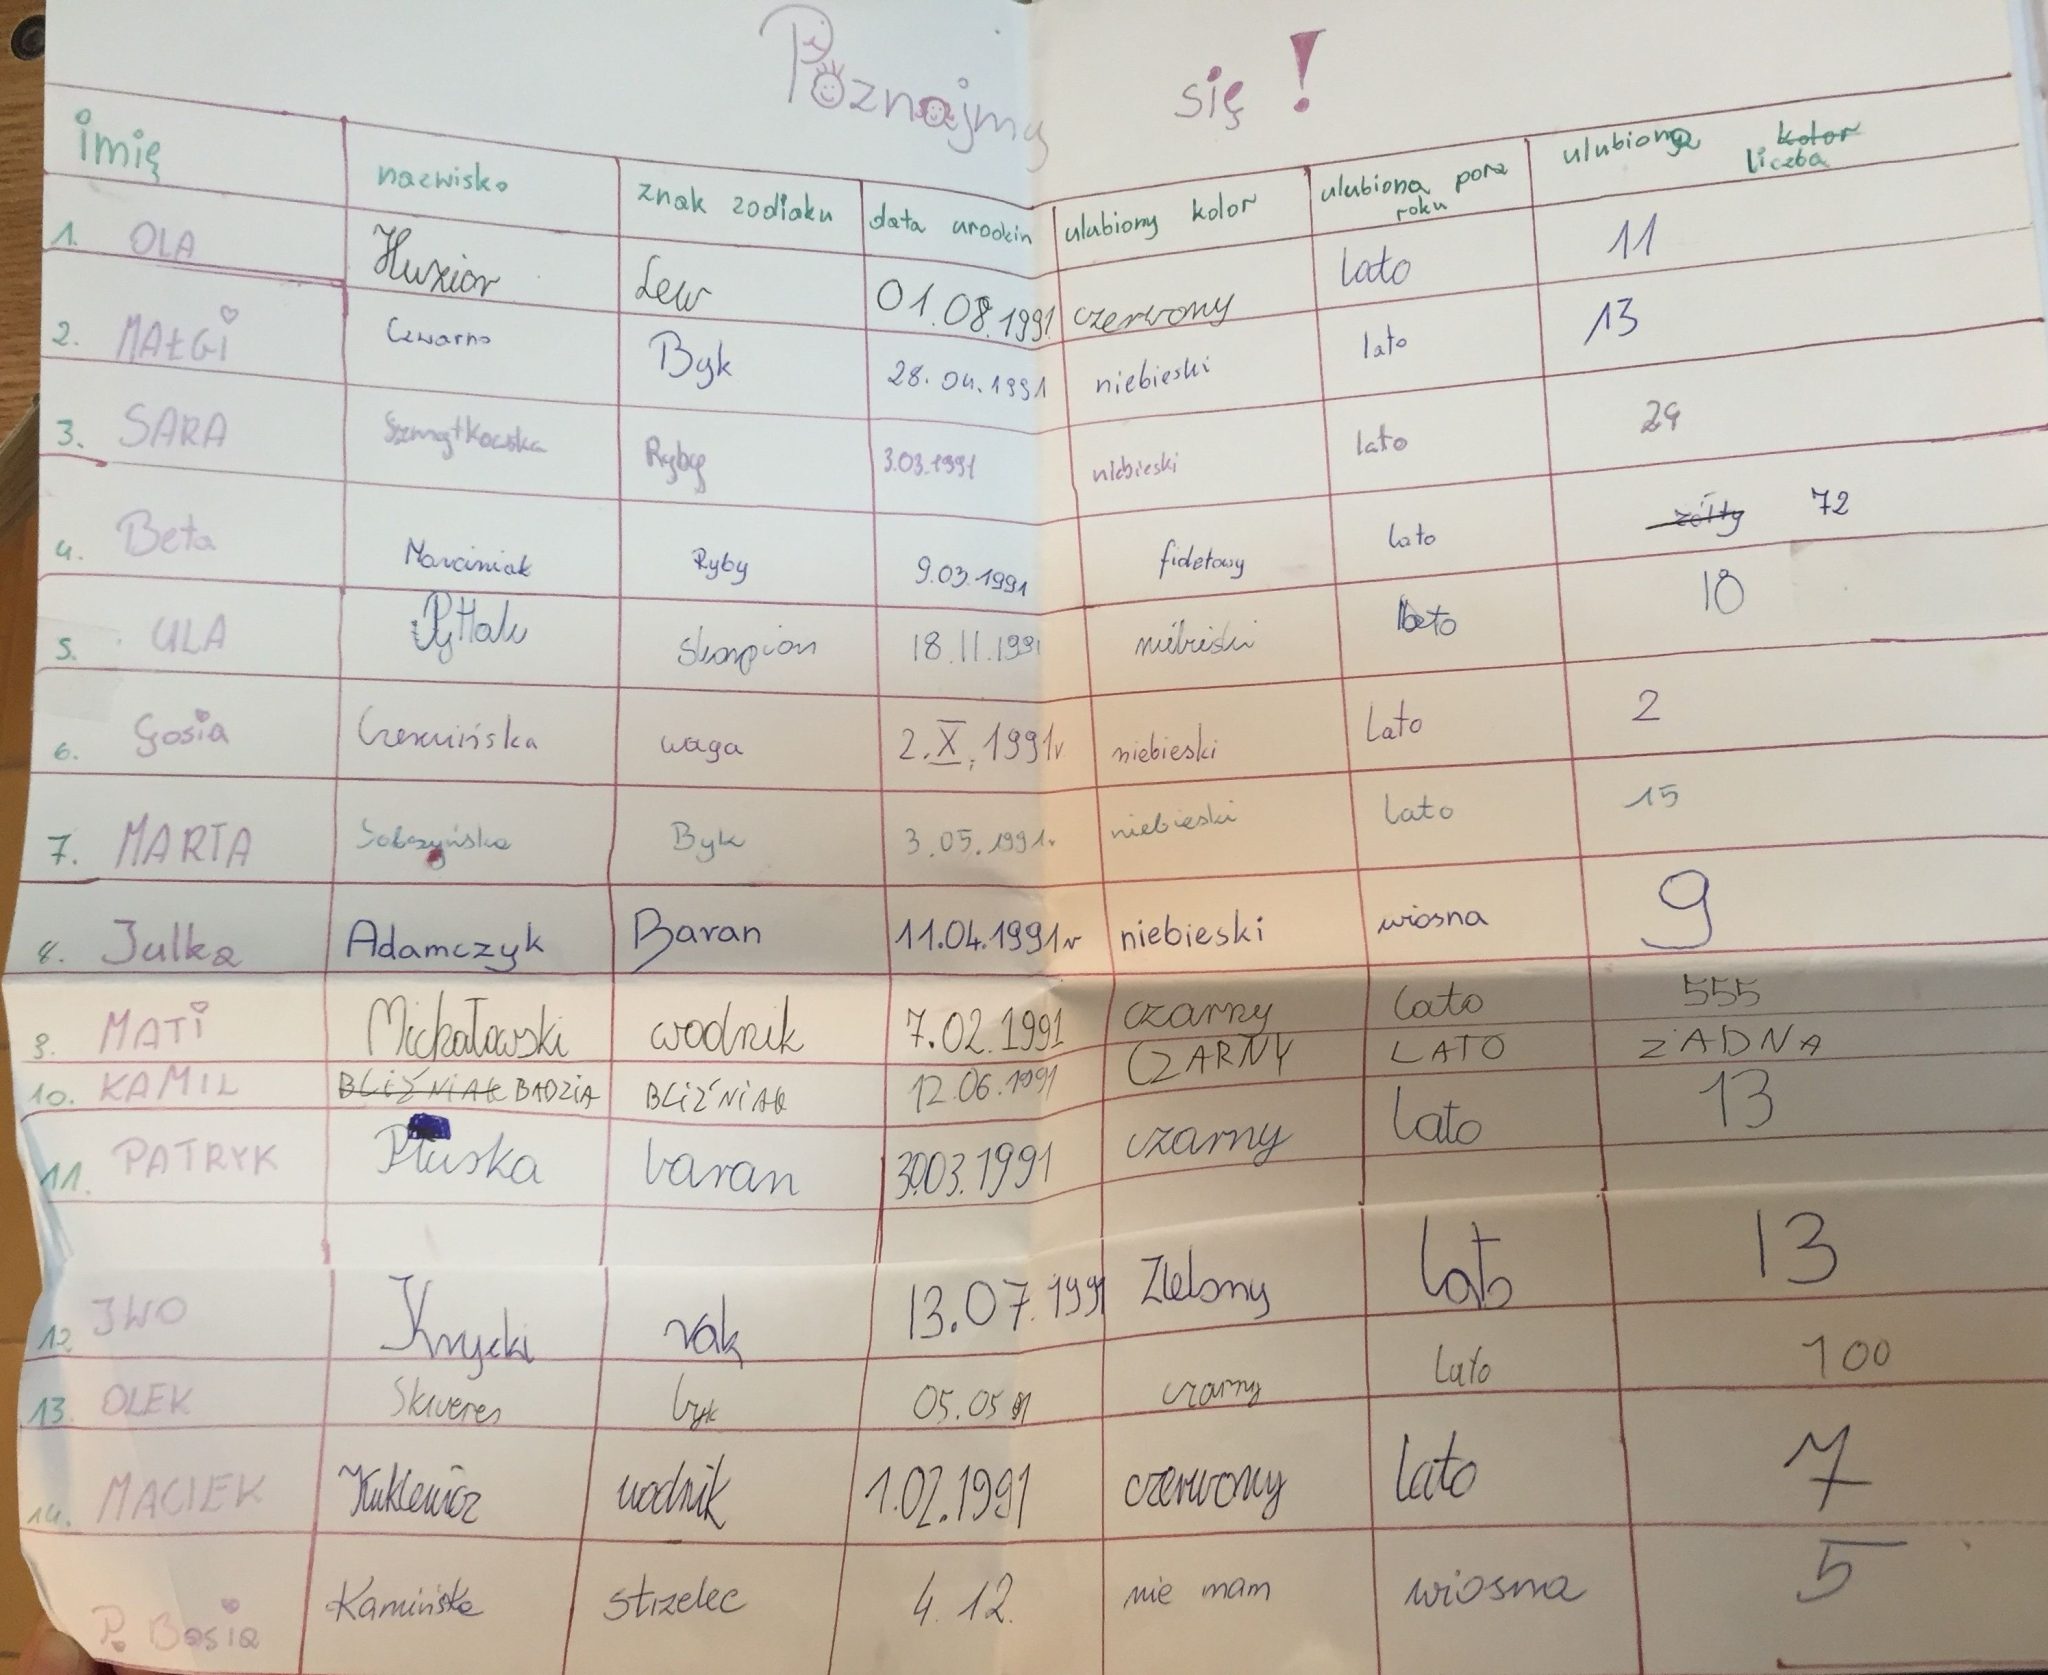 Poznajmy się!
imię nazwisko znak zodiaku data urodzin ulubiony kolor ulubiona pora roku ulubiona kolor liczba
1. OLA Huzior Lew 01.08.1991 czerwony lato 11
2. MAŁGI Czwarno Byk 28.04.1991 niebieski lato 13
3. SARA Szmytkowska Ryby 3.03.1991 niebieski lato 24
4. Beta Marciniak Ryby 9.03.1991 fioletowy lato żółty 72
5. ULA skorpion 18.11.1991 niebieski lato 18
6. Gosia Czermińska waga 2.X.1991r niebieski lato 2
7. MARTA Sobczyńska Byk 3.05.1991r niebieski lato 15
8. Julka Adamczyk Baran 11.04.1991r niebieski wiosna 9
9. MATI Michałowski wodnik 7.02.1991 czarny lato 555
10. KAMIL BLIŹNIAK BADZIA BLIŹNIAK 12.06.1991 CZARNY LATO ŻADNA
11. PATRYK Pluska baran 30.03.1991 czarny lato 13
12 IWO Knycki rak 13.07.1991 Zielony lato 13
13. OLEK Skweres byk 05.05.91 czarny lato 100
14. MACIEK Kuklewicz wodnik 1.02.1991 czerwony lato 7
P. Basia Kamińska strzelec 4.12. nie mam wiosna 5